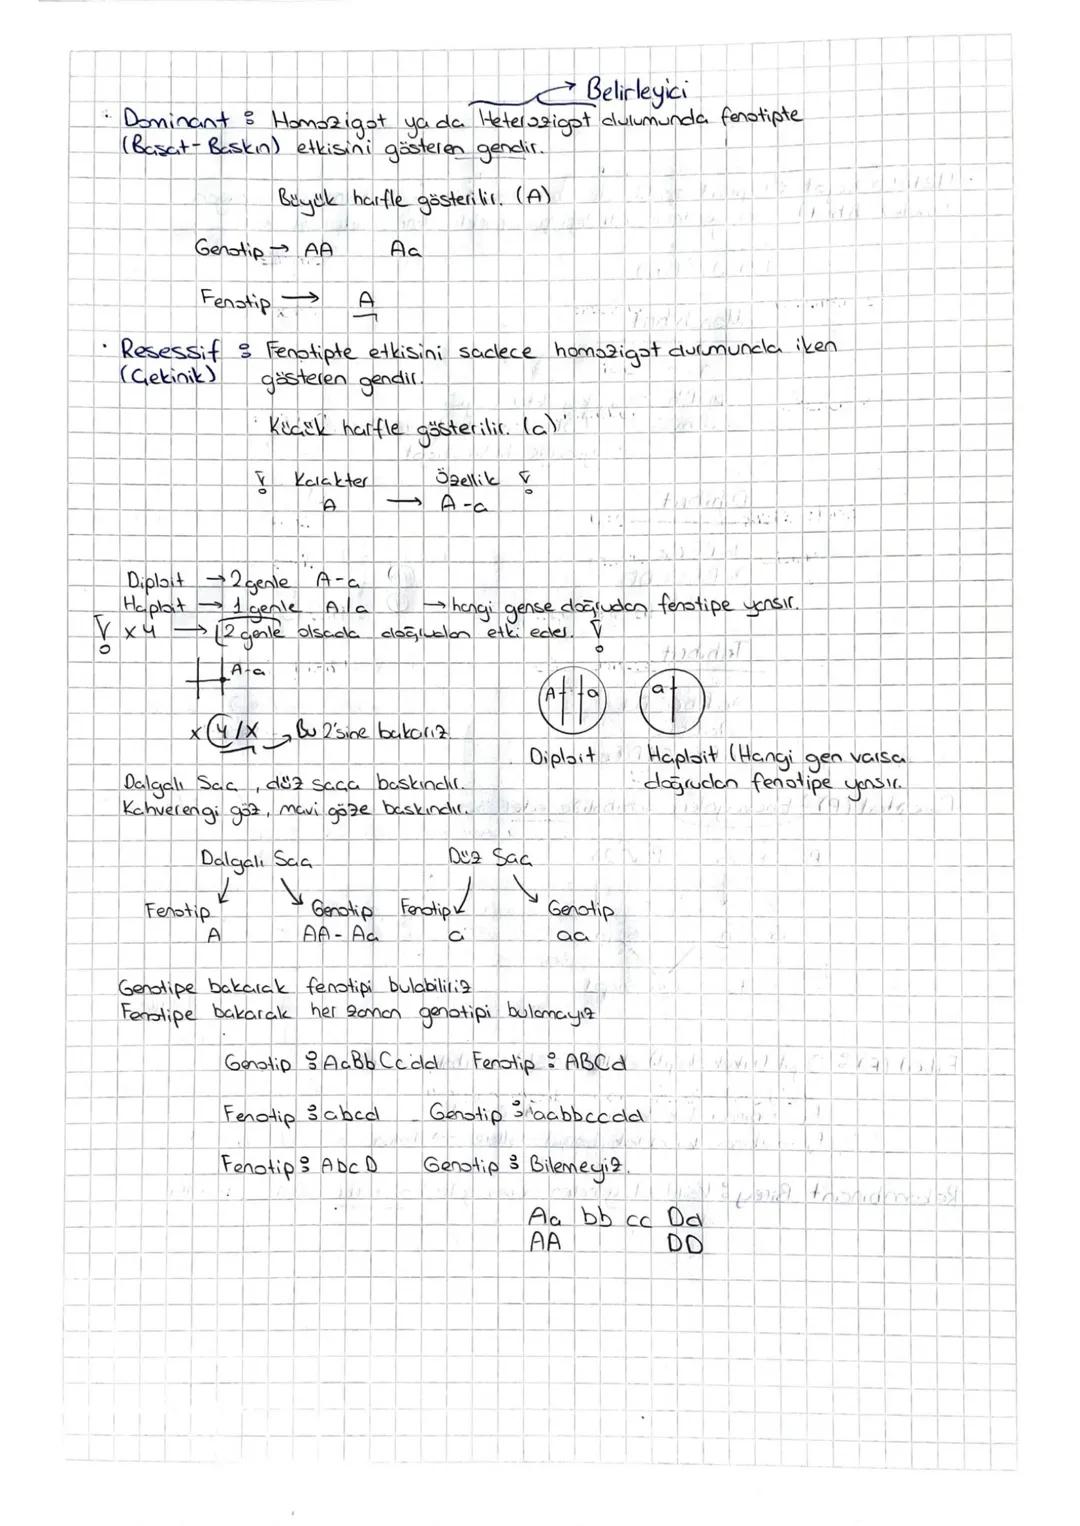 → Belirleyici
· Dominant : Homozigot ya da Heterozigot durumunda fenotipte
(Basat-Baskın) etkisini gösteren gendir.
Büyük harfle gösterilir. (A)
Genotip → AA Aa
Fenotip → A
· Resessif : Fenotipte etkisini sadece homozigot durumunda iken
(Çekinik) gösteren gendir.
Küçük harfle gösterilir. (a)
! Karakter Özellik !
A → A-a
Diploit → 2 genle A-a
Haploit → 1 genle A/a → hangi gense doğrudan fenotipe yansır.
! x y → 2 genle olsada doğrudan etki eder. !
A-a
x y/x → Bu 2'sine bakarız.
A a a
Diploit Haploit (Hangi gen varsa
doğrudan fenotipe yansır.
Dalgalı Saç, düz saça baskındır.
Kahverengi göz, mavi göze baskındır.
Dalgalı Saç Düz Saç
Fenotip Genotip Fenotip Genotip
A AA-Aa a aa
Genotipe bakarak fenotipi bulabiliriz
Fenotipe bakarak her zaman genotipi bulamayız
Genotip : AaBbCcdd Fenotip : ABCd
Fenotip : abcd Genotip : aabbccdd
Fenotip : AbcD Genotip : Bilemeyiz.
Aa bb cc Dd
AA DD